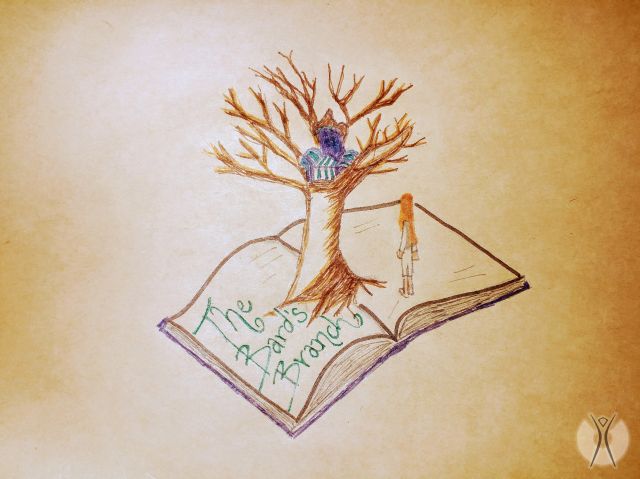 The
Bard's
Branch